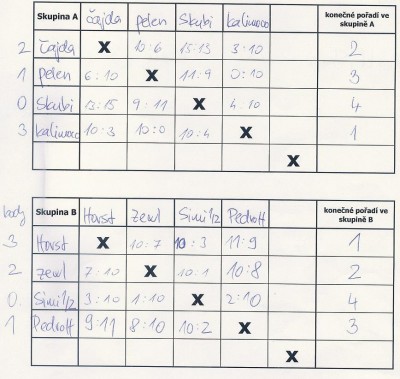 Skupina A čajda pelen Skubi kalimero konečné pořadí ve skupině A
2 čajda X 10:6 15:13 3:10 2
1 pelen 6:10 X 11:9 0:10 3
0 Skubi 13:15 9:11 X 4:10 4
3 kalimero 10:3 10:0 10:4 X 1
X
body Skupina B Horst zewl Simi1/2 Pedroff konečné pořadí ve skupině B
3 Horst X 10:7 10:3 11:9 1
2 zewl 7:10 X 10:1 10:8 2
0. Simi1/2 3:10 1:10 X 2:10 4
1 Pedroff 9:11 8:10 10:2 X 3
X